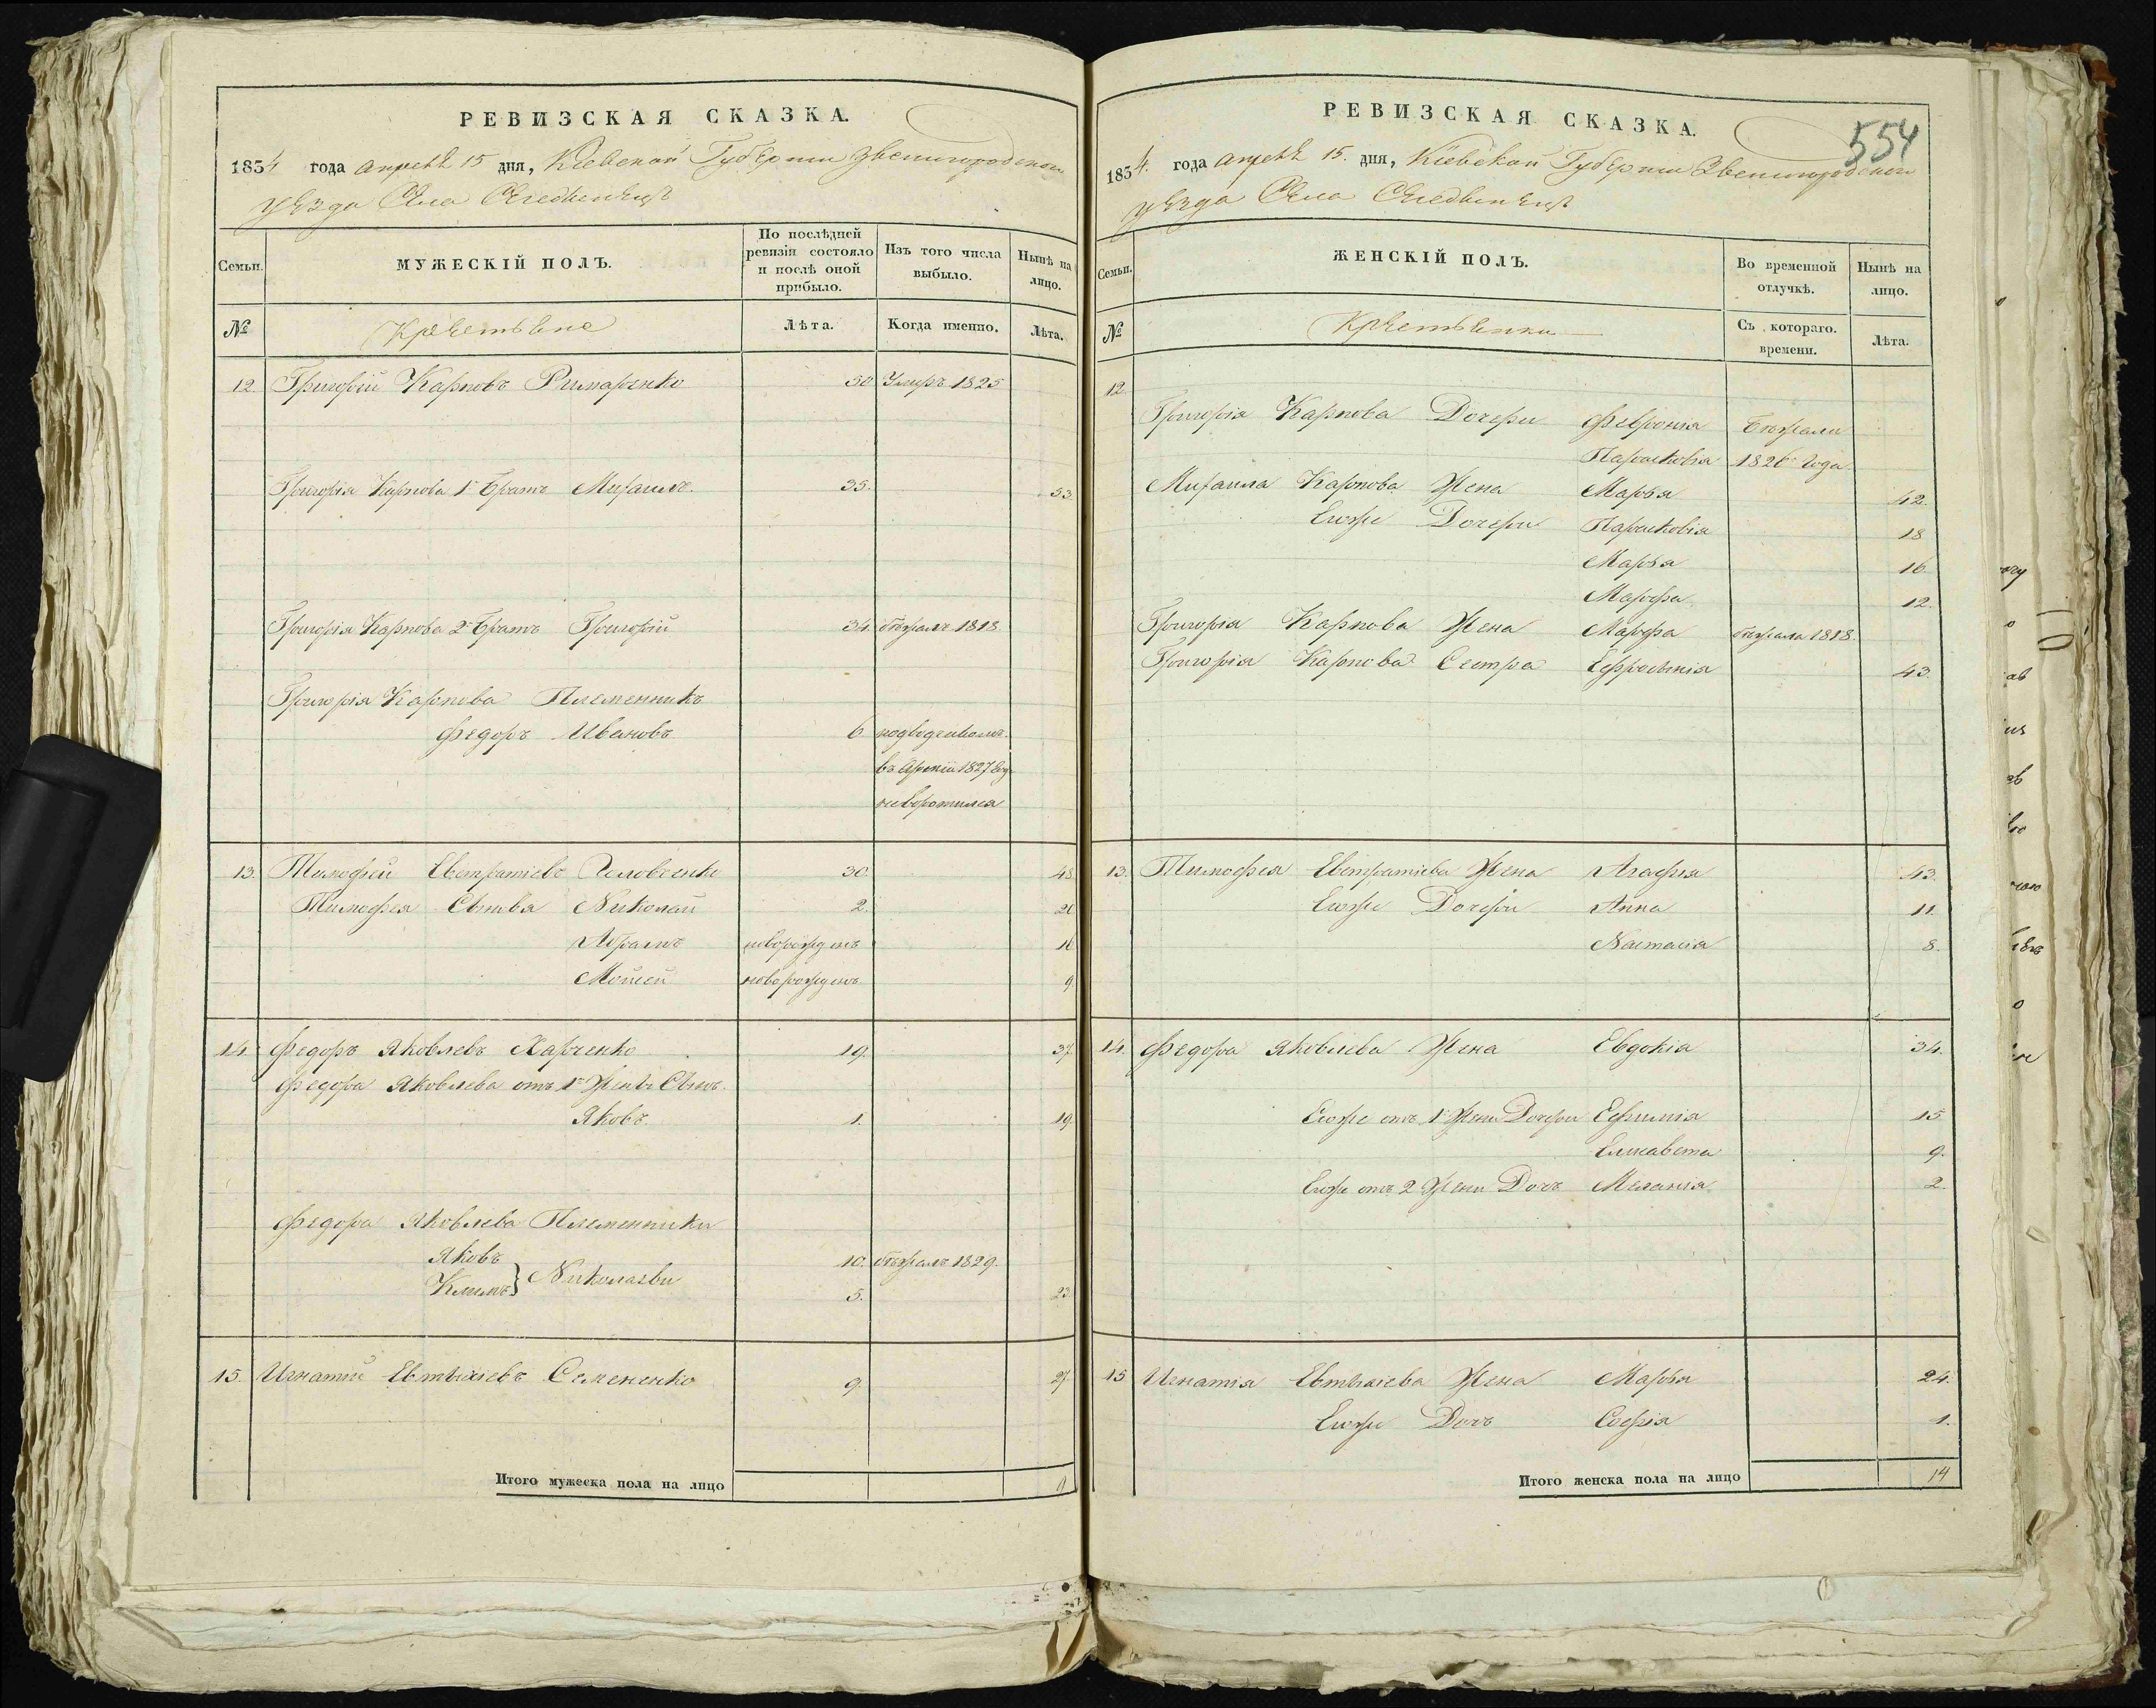 РЕВИЗСКАЯ СКАЗКА.
1834 года апреля 15 дня, Кіевской Губерніи Звенигородскаго
уезда Села
Семьи.
МУЖЕСКІЙ ПОЛЪ.
По послѣдней ревизіи состояло и послѣ оной прибыло.
Изъ того числа выбыло.
Нынѣ на лицо.
№
Крестьяне
Лѣта.
Когда именно.
Лѣта.
12. Григорій Карповъ Римаренко 50 Умеръ 1825
Григорія Карпова 1й Братъ Михаилъ. 35. 53.
Григорія Карпова 2й Братъ Григорій 34. бѣжалъ 1818
Григорія Карпова Племенникъ
Федоръ Ивановъ 6
въ Арміи 1827
13. Тимофей Евстратіевъ Головченко 30. 48.
Тимофея Сынвя Николай 2. 20
Абрамъ новорожденъ 16
Мойсей новорожденъ 9
14. Федоръ Яковлевъ Харченко 19. 37.
Федора Яковлева отъ 1й Жены Сынъ
Яковъ. 1. 19.
Федора Яковлева Племенники
Яковъ 10. бѣжалъ 1829.
Климъ } Николаеви 5. 23.
15. Игнатій Евтыхіевъ Семененко 9. 27.
Итого мужеска пола на лицо 9
РЕВИЗСКАЯ СКАЗКА.
554
1834. года апреля 15. дня, Кіевской Губерніи Звенигородскаго
уезда Села
Семьи.
ЖЕНСКІЙ ПОЛЪ.
Во временной отлучкѣ.
Нынѣ на лицо.
№
Крестьянки
Съ котораго. времени.
Лѣта.
12
Григорія Карпова Дочери Февронія бежали
Парасковія 1826 года.
Михаила Карпова Жена Марья 42.
Егоже Дочери Парасковія 18
Марья 16.
Марфа 12.
Григорія Карпова Жена Марфа бѣжала 1818.
Григорія Карпова Сестра Ефросинія 43.
13. Тимофея Евстратіева Жена Агафія 43.
Егоже Дочери Анна 11.
Настасія 8.
14. Федора Яковлева Жена Евдокія 34.
Егоже отъ 1й Жени Дочери Ефимія 15
Елисавета 9.
Егоже отъ 2 Жени Дочь Меланія 2.
15 Игнатія Евтыхіева Жена Марья 24.
Егоже Дочь Софія 1.
Итого женска пола на лицо 14